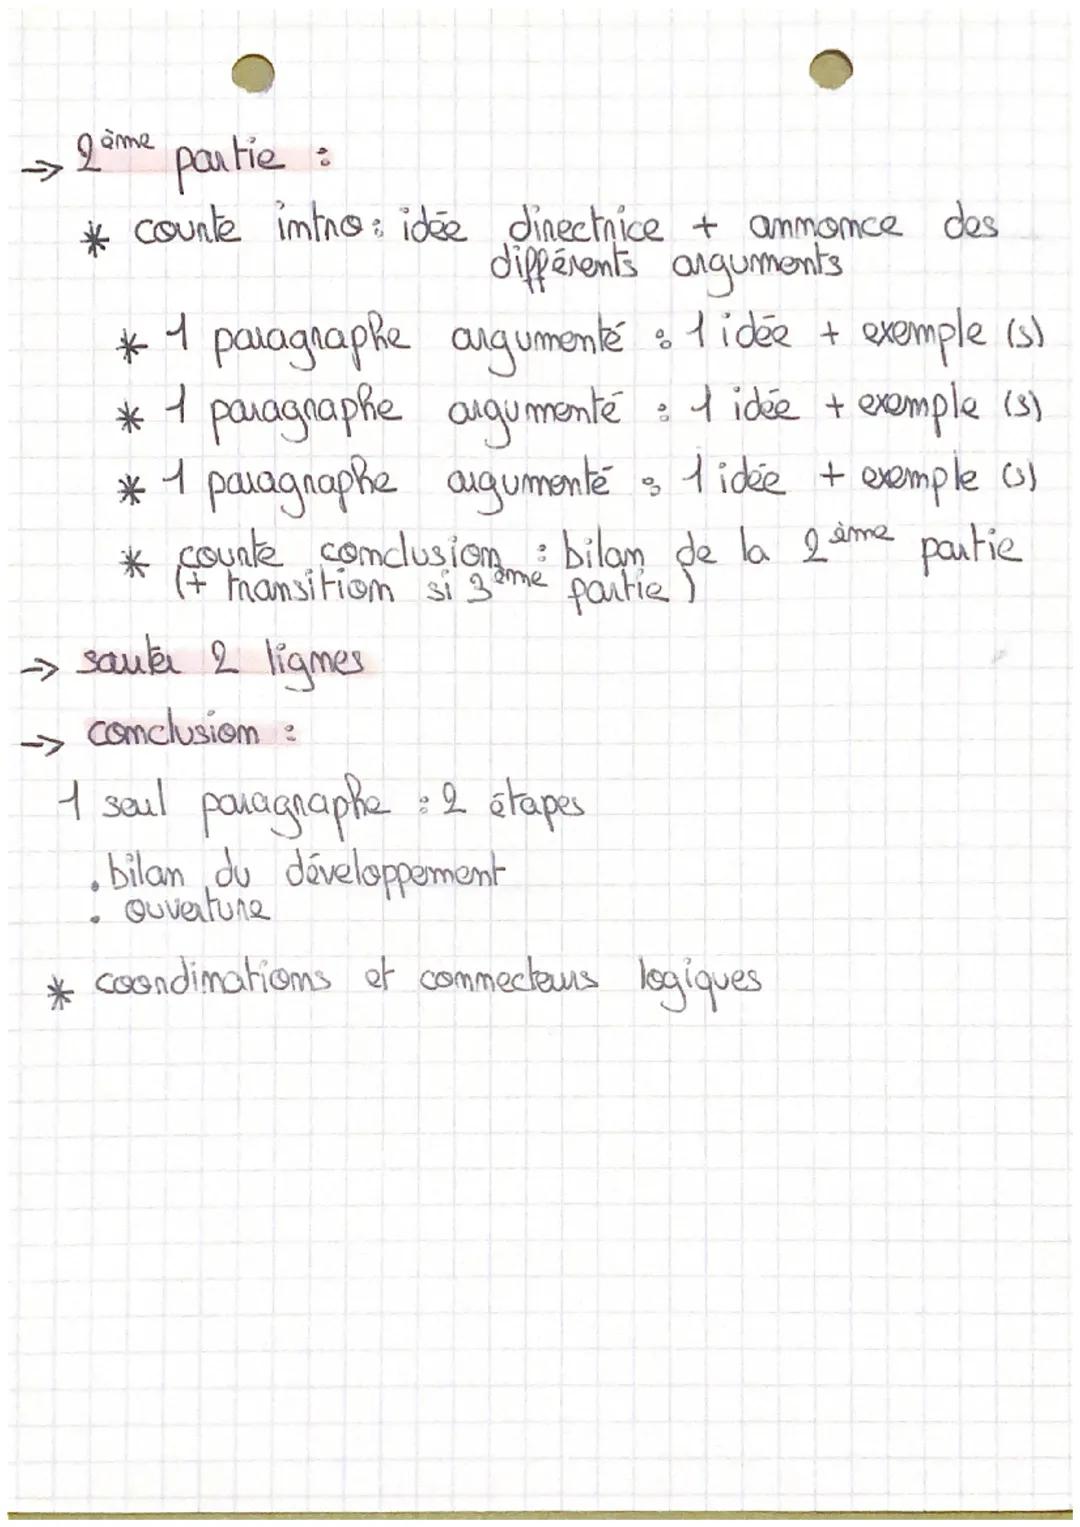 → 2ème partie :
* courte intro : idée directrice + annonce des
différents arguments
* 1 paragraphe argumenté : 1 idée + exemple (s)
* 1 paragraphe argumenté : 1 idée + exemple (s)
* 1 paragraphe argumenté : 1 idée + exemple (s)
* courte conclusion : bilan de la 2ème partie
(+ transition si 3ème partie)
→ sauter 2 lignes
→ conclusion :
1 seul paragraphe : 2 étapes
. bilan du développement
. ouverture
* coordinations et connecteurs logiques